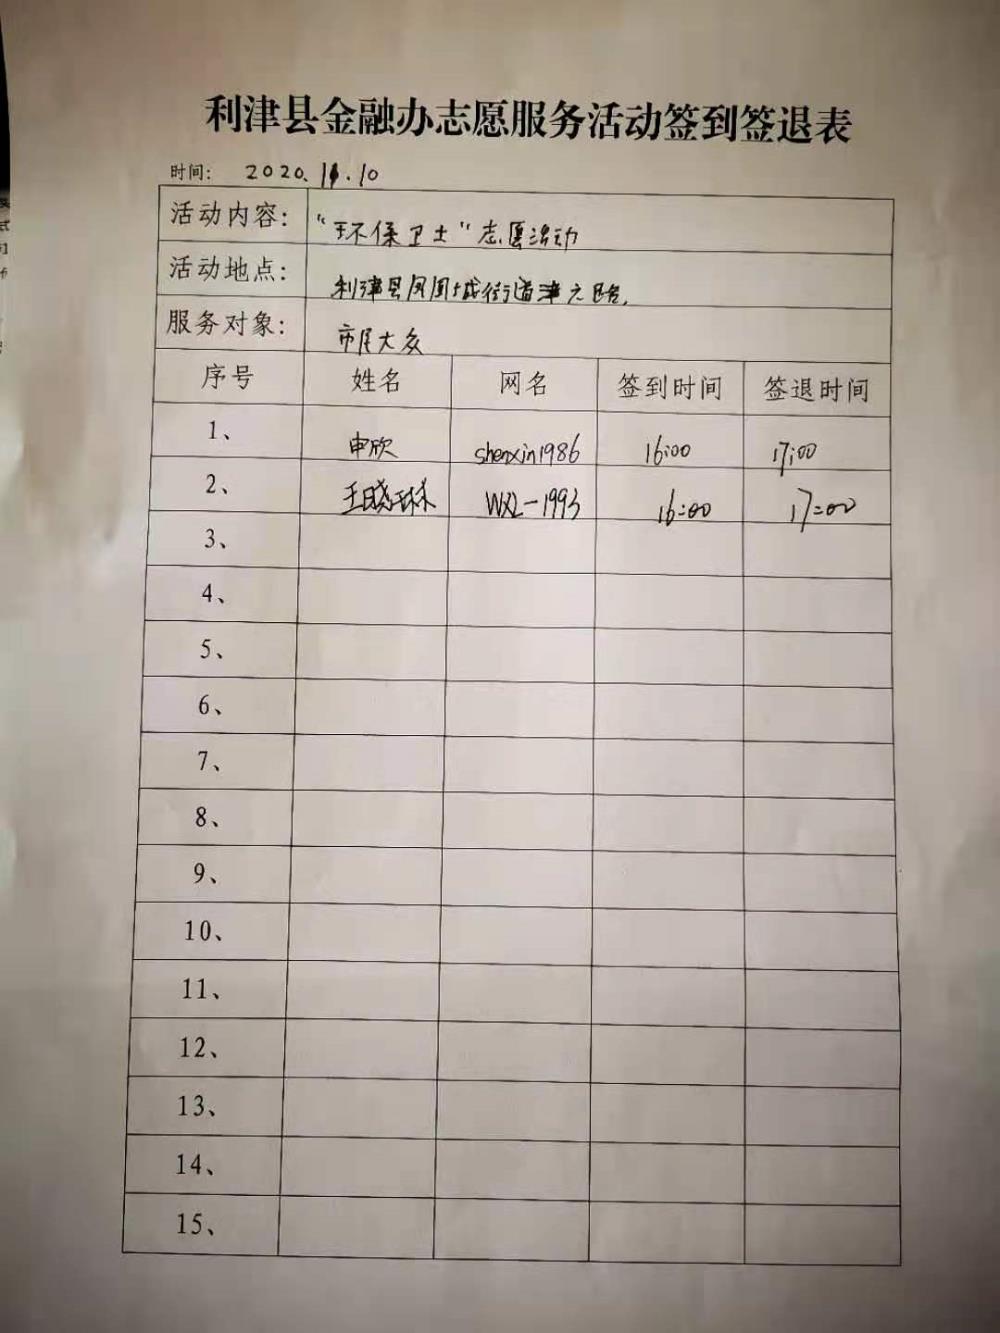 利津县金融办志愿服务活动签到签退表
时间: 2020.11.10
活动内容: “环保卫士“志愿活动
活动地点: 利津县凤凰城街道津六路.
服务对象: 市民大众
序号 姓名 网名 签到时间 签退时间
1、 申欣 shenxin1986 16:00 17:00
2、 王晓琳 WXL-1993 16:00 17:00
3、
4、
5、
6、
7、
8、
9、
10、
11、
12、
13、
14、
15、